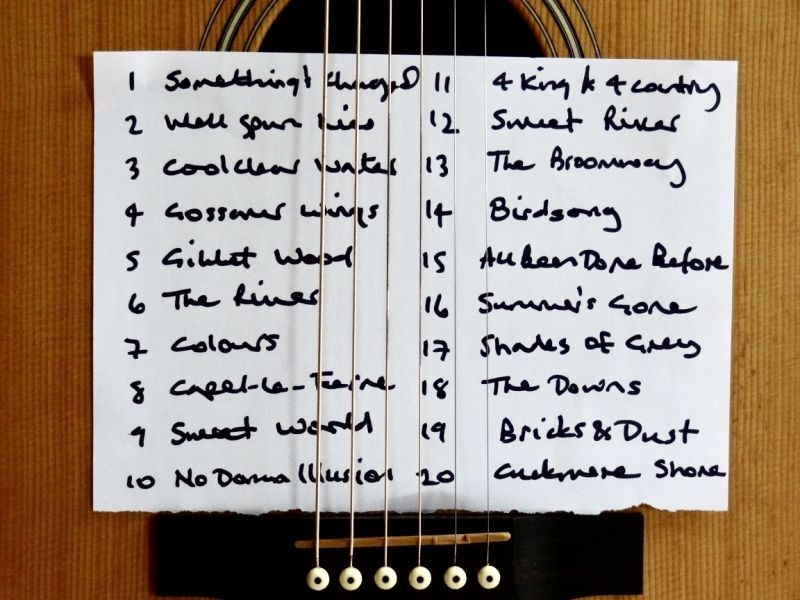 1 Something's Changed
2 Well Spun Lies
3 Cool clear water
4 Gossamer Wings
5 Gibbet Wood
6 The River
7 Colours
8 Capel-Le-Ferne
9 Sweet World
10 No Damn Illusion
11 4 King & 4 Country
12. Sweet River
13 The Broomway
14 Birdsong
15 All Been Done Before
16 Summer's Gone
17 Shades of Grey
18 The Downs
19 Bricks & Dust
20 Cuckmere Shore